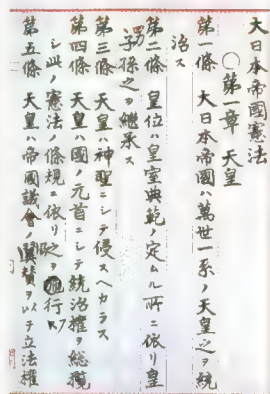 大日本帝國憲法
〇第一章 天皇
第一條 大日本帝國ハ萬世一系ノ天皇之ヲ統
治ス
第二條 皇位ハ皇室典範ノ定ムル所ニ依リ皇
男子孫之ヲ繼承ス
第三條 天皇ハ神聖ニシテ侵スヘカラス
第四條 天皇ハ國ノ元首ニシテ統治權ヲ総攬
シ此ノ憲法ノ條規ニ依リ之ヲ行フ
第五條 天皇ハ帝國議會ノ翼賛ヲ以テ立法權